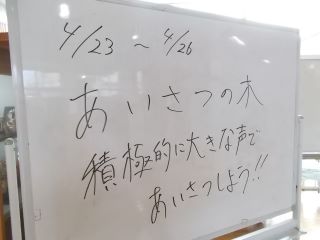 4/23 ~ 4/26
あいさつの木
積極的に大きな声で
あいさつしよう!!